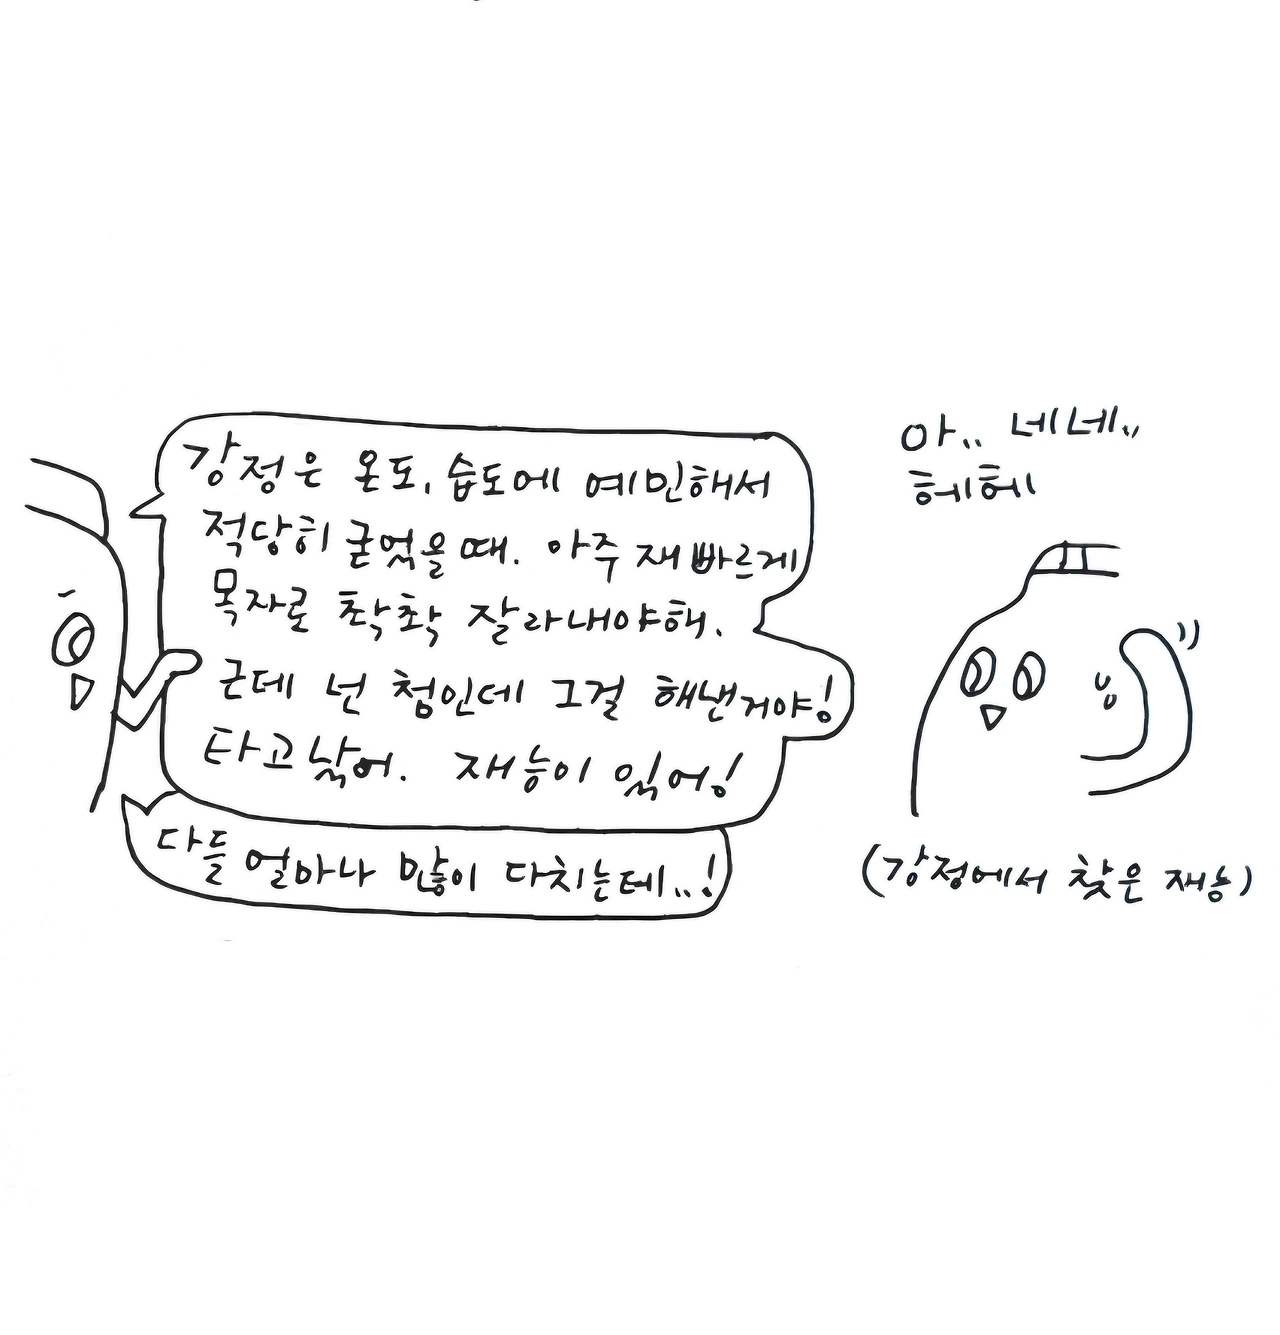 강정은 온도, 습도에 예민해서
적당히 굳었을 때. 아주 재빠르게
목자로 착착 잘라내야해.
근데 넌 첨인데 그걸 해낸거야!
타고났어. 재능이 있어!
다들 얼마나 많이 다치는데..!
아.. 네네..
헤헤
(강정에서 찾은 재능)